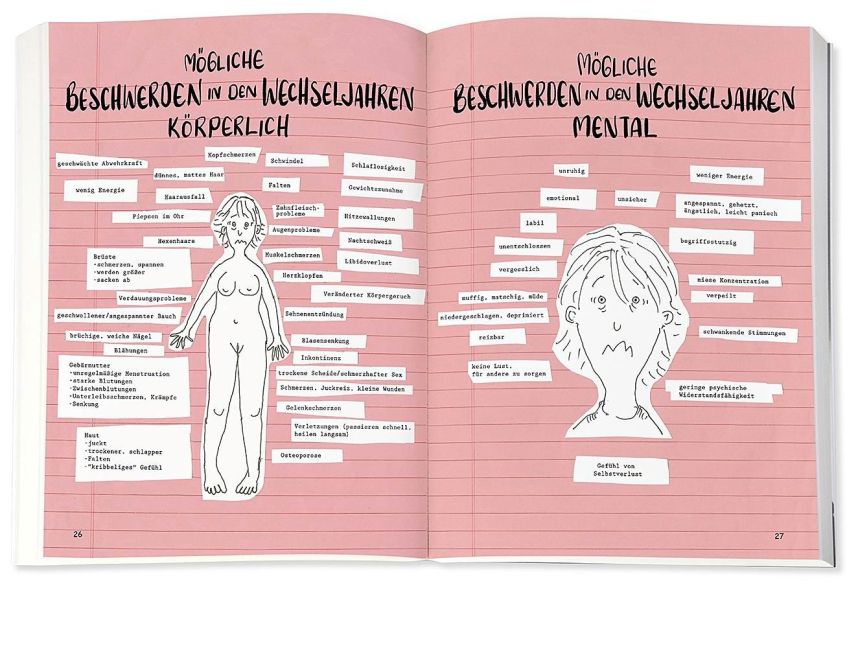 MÖGLICHE
BESCHWERDEN IN DEN WECHSELJAHREN
KÖRPERLICH
geschwächte Abwehrkraft
Kopfschmerzen
Schwindel
Schlaflosigkeit
dünnes, mattes Haar
wenig Energie
Haarausfall
Falten
Gewichtszunahme
Piepsen im Ohr
Zahnfleisch-
probleme
Hitzewallungen
Augenprobleme
Hexenhaare
Nachtschweiß
Brüste
-schmerzen, spannen
-werden größer
-sacken ab
Muskelschmerzen
Libidoverlust
Herzklopfen
Verdauungsprobleme
Veränderter Körpergeruch
geschwollener/angespannter Bauch
Sehnenentzündung
brüchige, weiche Nägel
Blasensenkung
Blähungen
Inkontinenz
Gebärmutter
-unregelmäßige Menstruation
-starke Blutungen
-Zwischenblutungen
-Unterleibsschmerzen, Krämpfe
-Senkung
trockene Scheide/schmerzhafter Sex
Schmerzen, Juckreiz, kleine Wunden
Gelenkschmerzen
Verletzungen (passieren schnell,
heilen langsam)
Haut
-juckt
-trockener, schlapper
-Falten
-"kribbeliges" Gefühl
Osteoporose
26
MÖGLICHE
BESCHWERDEN IN DEN WECHSELJAHREN
MENTAL
unruhig
weniger Energie
emotional
unsicher
angespannt, gehetzt,
ängstlich, leicht panisch
labil
unentschlossen
begriffsstutzig
vergesslich
miese Konzentration
muffig, matschig, müde
verpeilt
niedergeschlagen, deprimiert
reizbar
schwankende Stimmungen
keine Lust,
für andere zu sorgen
geringe psychische
Widerstandsfähigkeit
Gefühl von
Selbstverlust
27